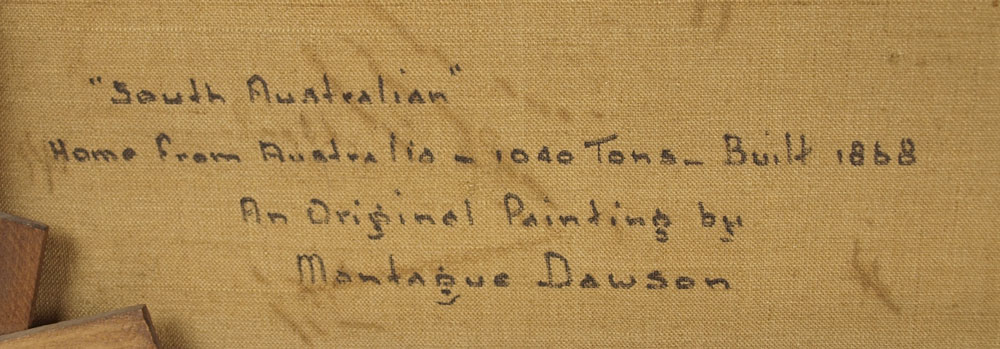 "South Australian"
Home from Australia - 1040 Tons - Built 1868
An Original Painting by
Montague Dawson